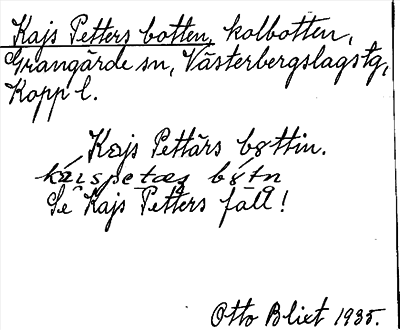 Kajs Petters botten, kolbotten,
Grangärde sn, Västerbergslags tg,
Kopp l.
Kajs Pettärs bottin.
Se Kajs Petters fall!
Otto Blixt 1935.